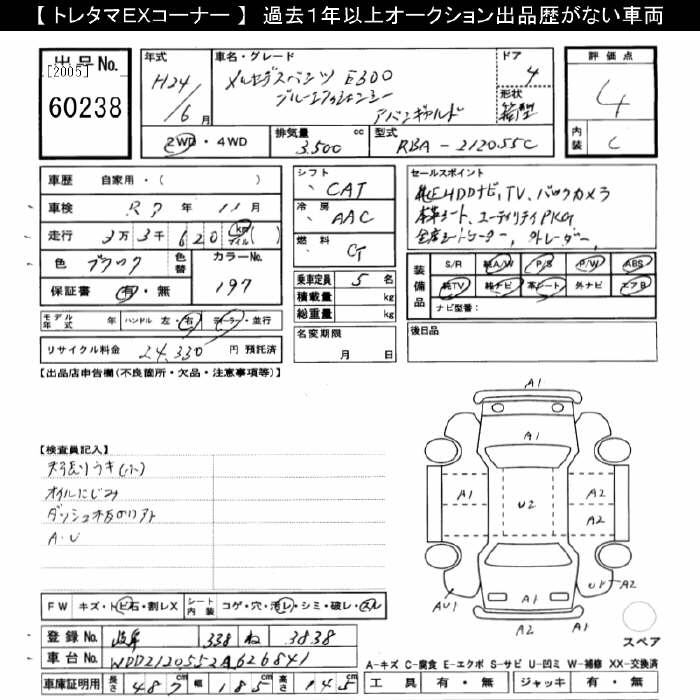 【 トレタマEXコーナー 】 過去１年以上オークション出品歴がない車両
出品No. [2005] 60238
年式 H24/6月
車名・グレード メルセデスベンツ E300
ブルーエフィシェンシー
アバンギャルド
ドア 4
形状 箱型
評価点 4
内装 C
2WD・4WD
排気量 3,500 cc
型式 RBA-212055C
車歴 自家用・( )
車検 R7年 11月
走行 3万3千620 km マイル( )
色 ブラック 色替 カラーNo. 197
保証書 有・無
モデル年式 年 ハンドル 左・右 ディーラー・並行
リサイクル料金 24,330 円 預託済
シフト CAT
冷房 AAC
燃料
乗車定員 5 名
積載量 kg
総重量 kg
名変期限
月 日
セールスポイント
純正HDDナビ,TV,バックカメラ
本革シート、ユーティリティPKG
全席シートヒーター, レーダー,
装備品 S/R 純A/W P/S P/W ABS
純TV 純ナビ 本シート 外ナビ エアB
ナビ型番：
後日品
【出品店申告欄(不良箇所・欠品・注意事項等)】
【検査員記入】
天張りウキ(小)
オイルにじみ
ダッシュ
A・U
A1
A1
A1
U2
A2
A2
A1
A1
AU1
U1
A2
スペア
FW キズ・トビ石・割レX シート内装 コゲ・穴・汚レ・シミ・破レ・スレ
登録No. 岐阜 338 ね 3838
車台No. WDD2120552A626841
車庫証明用 長さ 487 cm 幅 185 cm 高さ 145 cm
A-キズ C-腐食 E-エクボ S-サビ U-凹ミ W-補修 XX-交換済
工具 有・無 ジャッキ 有・無